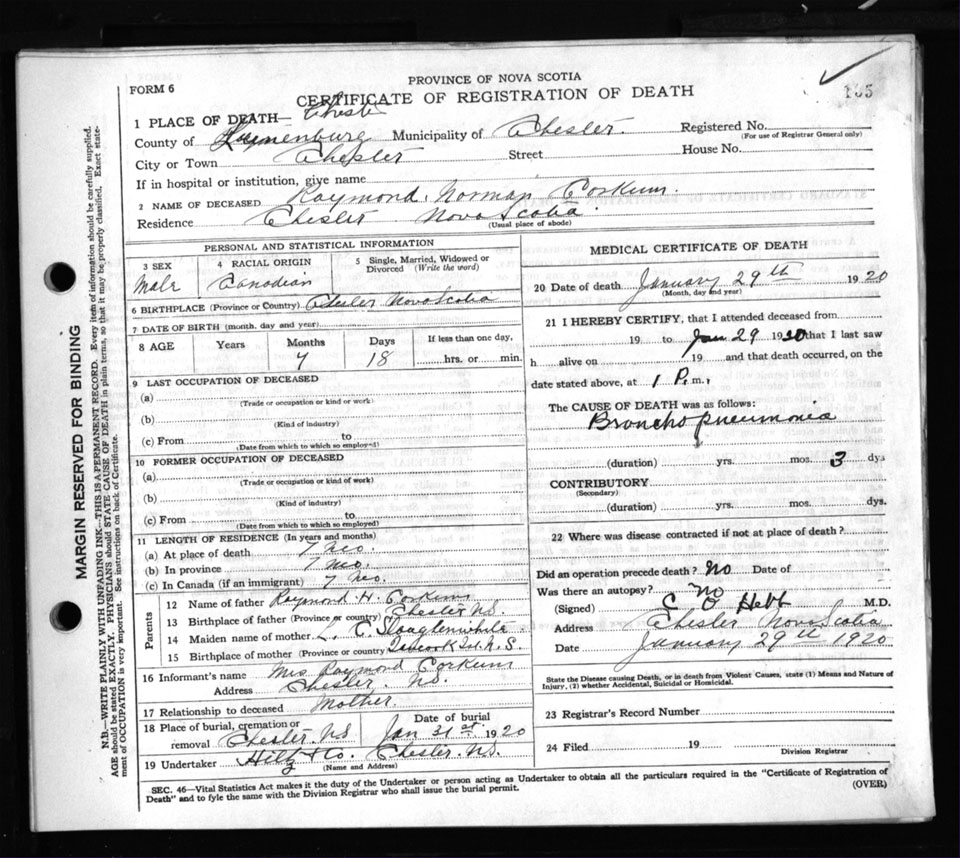 PROVINCE OF NOVA SCOTIA
FORM 6
CERTIFICATE OF REGISTRATION OF DEATH
1 PLACE OF DEATH— Chester
County of Lunenburg Municipality of Chester. Registered No.
(For use of Registrar General only)
City or Town Chester Street House No.
If in hospital or institution, give name
2 NAME OF DECEASED Raymond Norman Corkum.
Residence Chester Nova Scotia
(Usual place of abode)
PERSONAL AND STATISTICAL INFORMATION
3 SEX
Male
4 RACIAL ORIGIN
Canadian
5 Single, Married, Widowed or Divorced (Write the word)
6 BIRTHPLACE (Province or Country) Chester Nova Scotia
7 DATE OF BIRTH (month, day and year)
8 AGE Years Months Days If less than one day,
7 18 hrs. or min.
9 LAST OCCUPATION OF DECEASED
(a)
(Trade or occupation or kind or work)
(b)
(Kind of industry)
(c) From to
(Date from which to which so employed)
10 FORMER OCCUPATION OF DECEASED
(a)
(Trade or occupation or kind of work)
(b)
(Kind of industry)
(c) From to
(Date from which to which so employed)
11 LENGTH OF RESIDENCE (In years and months)
(a) At place of death 7 mo.
(b) In province 7 mo.
(c) In Canada (if an immigrant) 7 mo.
Parents
12 Name of father Raymond H. Corkum
13 Birthplace of father (Province or country) Chester N.S.
14 Maiden name of mother L. C.
15 Birthplace of mother (Province or country) N.S.
16 Informant's name Mrs Raymond Corkum
Address Chester. N.S.
17 Relationship to deceased Mother.
18 Place of burial, cremation or Date of burial
removal Chester. N.S. Jan 31st 1920
19 Undertaker & Co. Chester. N.S.
(Name and Address)
MEDICAL CERTIFICATE OF DEATH
20 Date of death January 29th 1920
(Month, day and year)
21 I HEREBY CERTIFY, that I attended deceased from
19 to Jan 29 1920 that I last saw
h alive on 19 and that death occurred, on the
date stated above, at 1 P.m.
The CAUSE OF DEATH was as follows:
Broncho pneumonia
(duration) yrs. mos. 3 dys
CONTRIBUTORY
(Secondary)
(duration) yrs. mos. dys.
22 Where was disease contracted if not at place of death?
Did an operation precede death? No Date of
Was there an autopsy? No
(Signed) C O Hebb M.D.
Address Chester Nova Scotia
Date January 29th 1920
State the Disease causing Death, or in death from Violent Causes, state (1) Means and Nature of
Injury, (2) whether Accidental, Suicidal or Homicidal.
23 Registrar's Record Number
24 Filed 19
Division Registrar
SEC. 46—Vital Statistics Act makes it the duty of the Undertaker or person acting as Undertaker to obtain all the particulars required in the "Certificate of Registration of
Death" and to fyle the same with the Division Registrar who shall issue the burial permit.
(OVER)
MARGIN RESERVED FOR BINDING
N.B.—WRITE PLAINLY WITH UNFADING INK—THIS IS A PERMANENT RECORD. Every item of information should be carefully supplied.
AGE should be stated EXACTLY. PHYSICIANS should STATE CAUSE OF DEATH in plain terms, so that it may be properly classified. Exact state-
ment of OCCUPATION is very important. See instructions on back of Certificate.